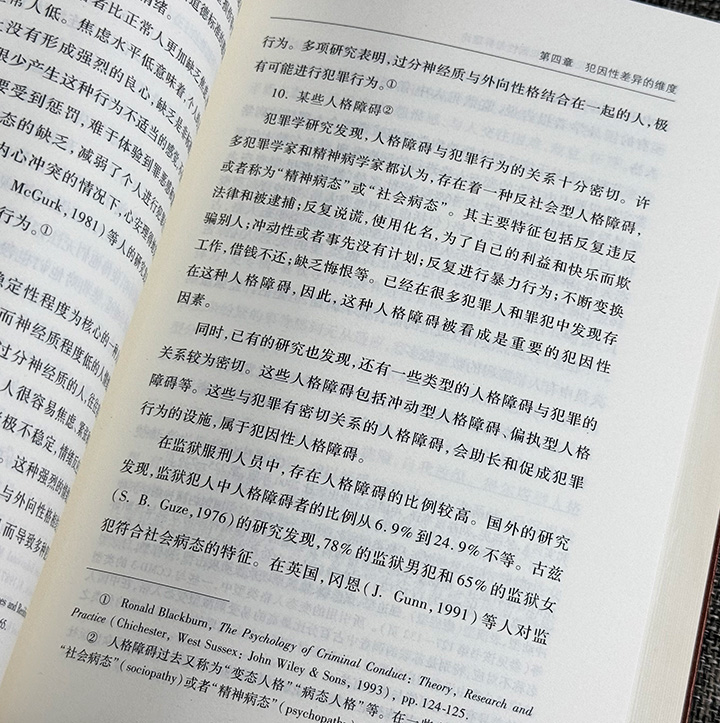 者比正常人更加缺乏
常人低。焦虑水平低意味着,个
没有形成强烈的良心,缺乏
很少产生这种行为不适当的感觉
要受到惩罚,难于体验到罪恶
态的缺乏,减弱了个人进行犯
内心冲突的情况下,心安理得
McGurk, 1981)等人的研究
行为。①
稳定性程度为核心的一种
而神经质程度低的人
过分神经质的人,在
人很容易焦虑,紧
极不稳定,情绪
。这种强烈的
与外向性格相
而导致多种
第四章 犯因性差异的维度
行为。多项研究表明,过分神经质与外向性格结合在一起的人,极
有可能进行犯罪行为。①
10. 某些人格障碍②
犯罪学研究发现,人格障碍与犯罪行为的关系十分密切。许
多犯罪学家和精神病学家都认为,存在着一种反社会型人格障碍,
或者称为“精神病态”或“社会病态”。其主要特征包括反复违反
法律和被逮捕;反复说谎,使用化名,为了自己的利益和快乐而欺
骗别人;冲动性或者事先没有计划;反复进行暴力行为;不断变换
工作,借钱不还;缺乏悔恨等。已经在很多犯罪人和罪犯中发现存
在这种人格障碍,因此,这种人格障碍被看成是重要的犯因性
因素。
同时,已有的研究也发现,还有一些类型的人格障碍与犯罪的
关系较为密切。这些人格障碍包括冲动型人格障碍、偏执型人格
障碍等。这些与犯罪有密切关系的人格障碍,会助长和促成犯罪
行为的设施,属于犯因性人格障碍。
在监狱服刑人员中,存在人格障碍的比例较高。国外的研究
发现,监狱犯人中人格障碍者的比例从6.9%到24.9%不等。古兹
(S. B. Guze, 1976)的研究发现,78%的监狱男犯和65%的监狱女
犯符合社会病态的特征。在英国,冈恩(J. Gunn, 1991)等人对监
① Ronald Blackburn, The Psychology of Criminal Conduct: Theory, Research and
Practice (Chichester, West Sussex: John Wiley & Sons, 1993), pp. 124-125.
② 人格障碍过去又称为“变态人格”“病态人格”等。在一些
“社会病态”(sociopathy)或者“精神病态”(psychopathy)